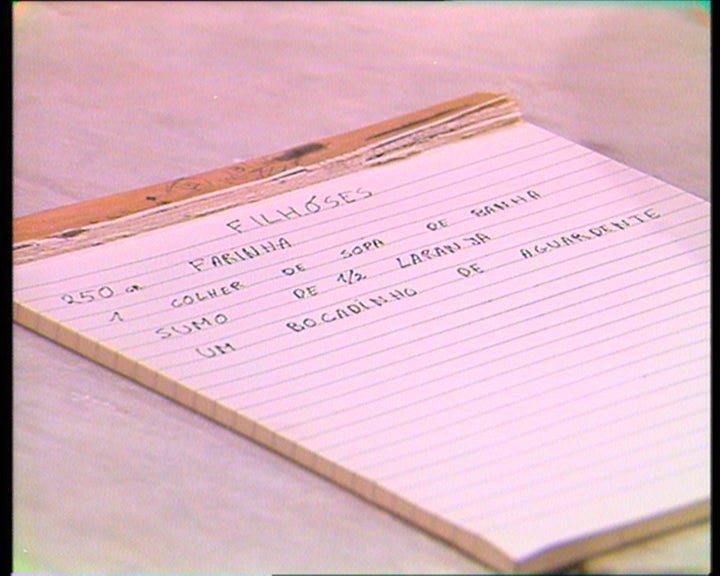 FILHÓSES
250 GR FARINHA
1 COLHER DE SOPA DE BANHA
SUMO DE 1/2 LARANJA
UM BOCADINHO DE AGUARDENTE